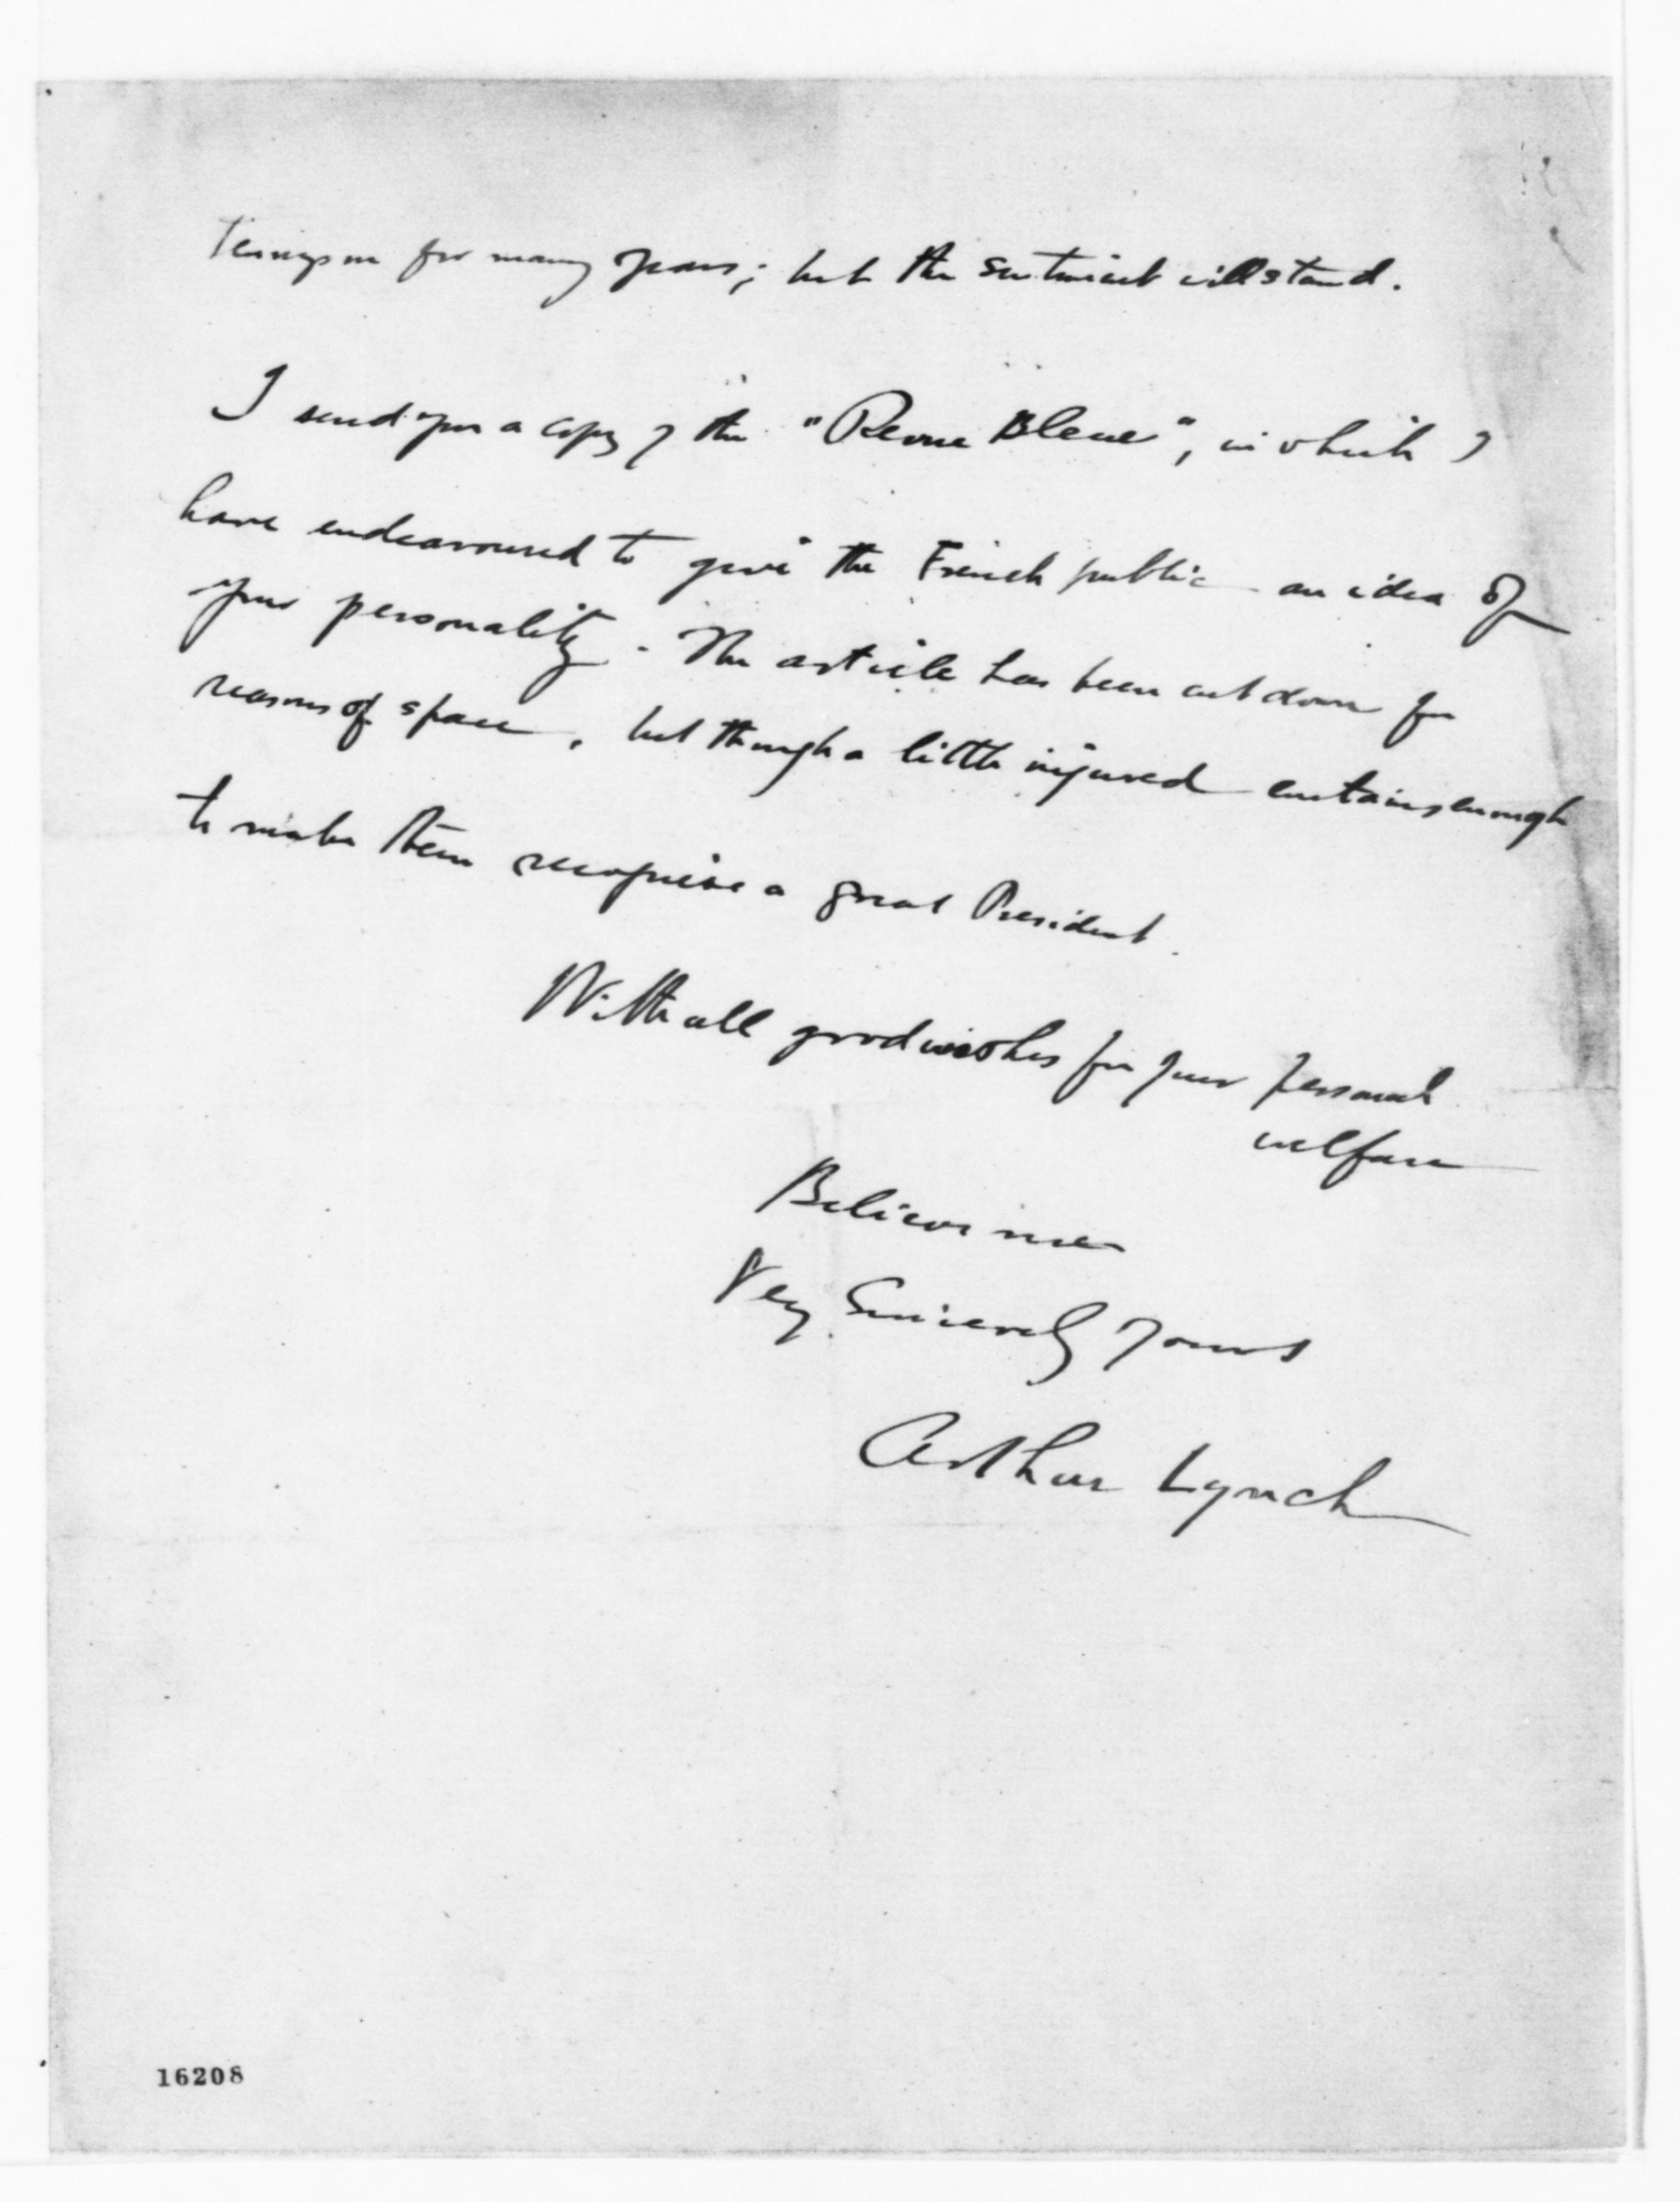 Tennyson for many years; but the sentiment will stand.
I send you a copy of the "Revue Bleue", in which I
have endeavoured to give the French public an idea of
your personality. The article has been cut down for
reasons of space, but though a little injured contains enough
to make them recognise a great President.
With all good wishes for your personal
welfare
Believe me
Very Sincerely Yours
Arthur Lynch
16208